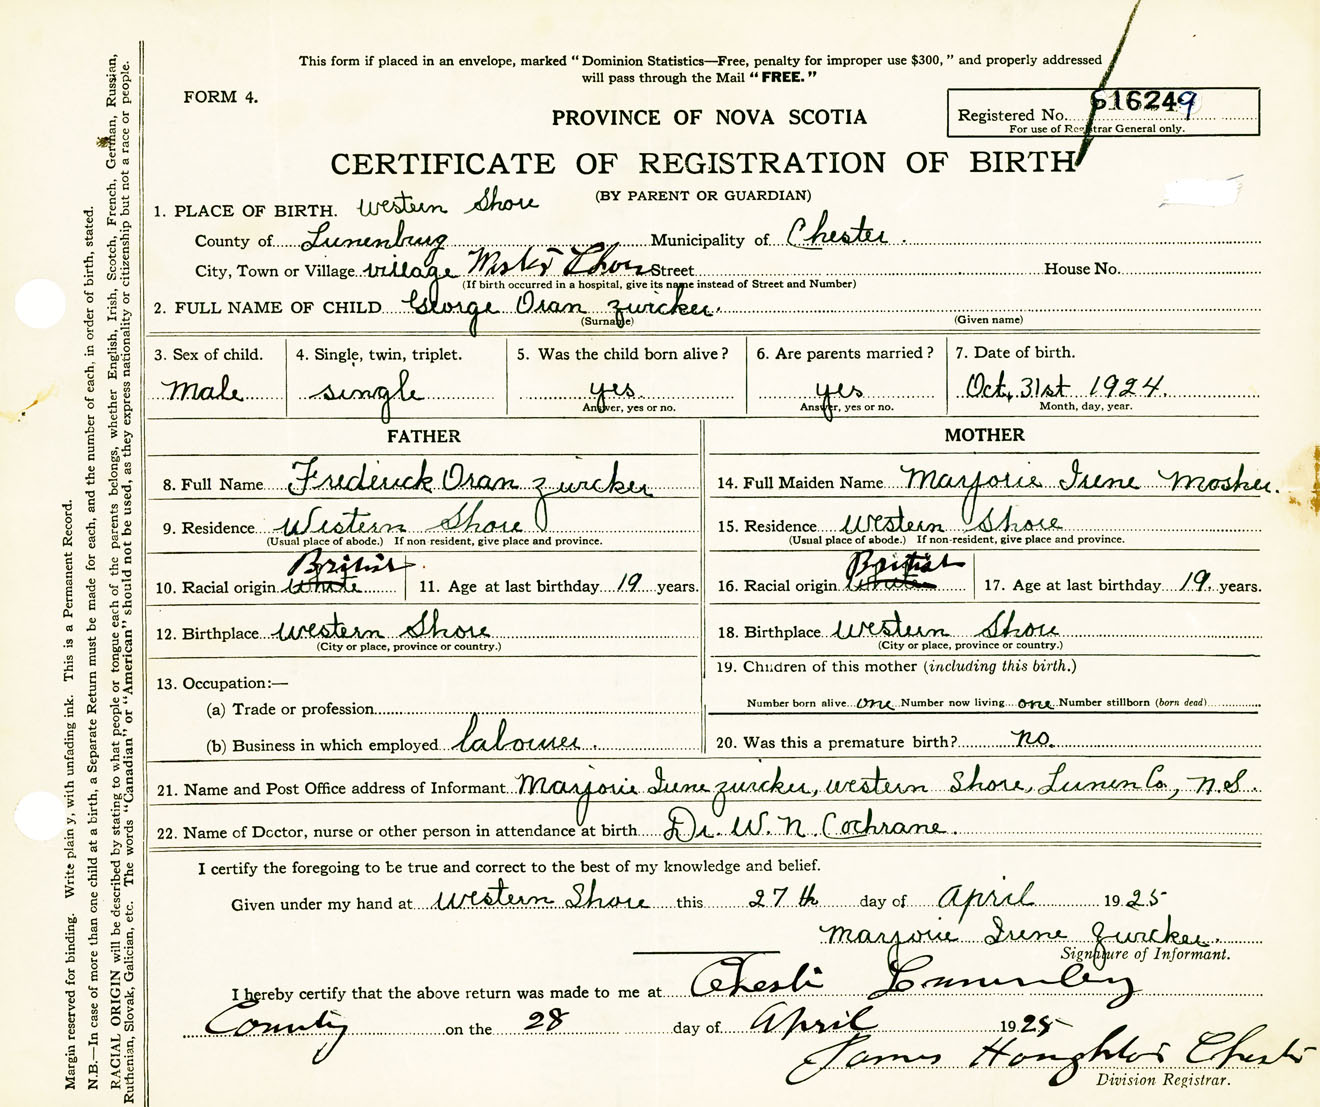 This form if placed in an envelope, marked "Dominion Statistics—Free, penalty for improper use $300," and properly addressed
will pass through the Mail "FREE."
FORM 4.
PROVINCE OF NOVA SCOTIA
Registered No. 616249
For use of Registrar General only.
CERTIFICATE OF REGISTRATION OF BIRTH
(BY PARENT OR GUARDIAN)
1. PLACE OF BIRTH. Western Shore
County of Lunenburg Municipality of Chester.
City, Town or Village village Western Shore Street House No.
(If birth occurred in a hospital, give its name instead of Street and Number)
2. FULL NAME OF CHILD George Oran Zwicker.
(Surname) (Given name)
3. Sex of child. 4. Single, twin, triplet. 5. Was the child born alive? 6. Are parents married? 7. Date of birth.
Male single yes yes Oct, 31st 1924.
Answer, yes or no. Answer, yes or no. Month, day, year.
FATHER MOTHER
8. Full Name Frederick Oran Zwicker 14. Full Maiden Name Marjorie Irene Mosher.
9. Residence Western Shore 15. Residence Western Shore
(Usual place of abode.) If non resident, give place and province. (Usual place of abode.) If non-resident, give place and province.
British British
10. Racial origin White 11. Age at last birthday 19 years. 16. Racial origin White 17. Age at last birthday 19. years.
12. Birthplace Western Shore 18. Birthplace Western Shore
(City or place, province or country.) (City or place, province or country.)
13. Occupation:— 19. Children of this mother (including this birth.)
(a) Trade or profession Number born alive one Number now living one Number stillborn (born dead)
(b) Business in which employed labourer. 20. Was this a premature birth? no.
21. Name and Post Office address of Informant Marjorie Irene Zwicker, Western Shore, Lunen Co, N.S.
22. Name of Doctor, nurse or other person in attendance at birth Dr. W. N. Cochrane.
I certify the foregoing to be true and correct to the best of my knowledge and belief.
Given under my hand at Western Shore this 27th day of April 1925
Marjorie Irene Zwicker.
Signature of Informant.
I hereby certify that the above return was made to me at Chester Lunenburg
County on the 28 day of April 1925
James Houghton Chester
Division Registrar.
Margin reserved for binding. Write plainy, with unfading ink. This is a Permanent Record.
N.B.—In case of more than one child at a birth, a Separate Return must be made for each, and the number of each, in order of birth, stated.
RACIAL ORIGIN will be described by stating to what people or tongue each of the parents belongs, whether English, Irish, Scotch, French, German, Russian,
Ruthenian, Slovak, Galician, etc. The words "Canadian" or "American" should not be used, as they express nationality or citizenship but not a race or people.